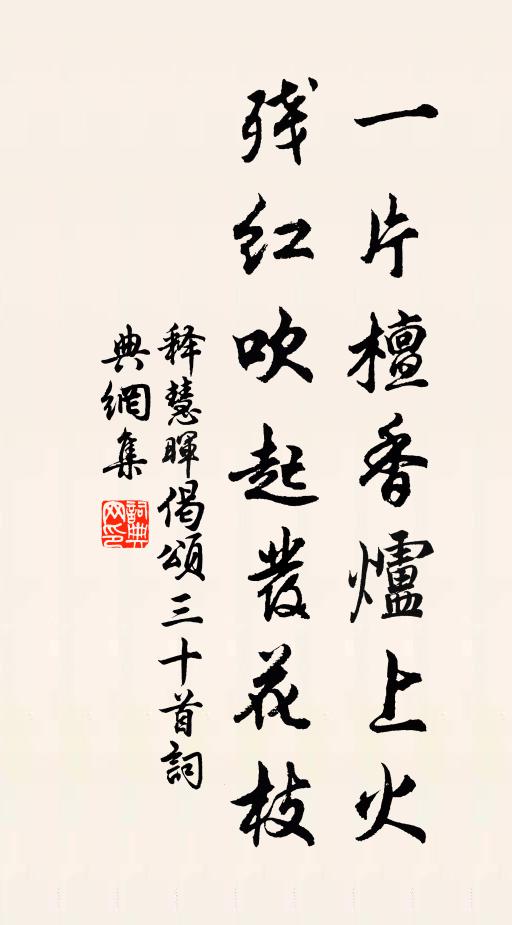 一片檀香爐上火
残红吹起發花枝
释慧暉偈頌三十首詞
典網集
詞典
网印